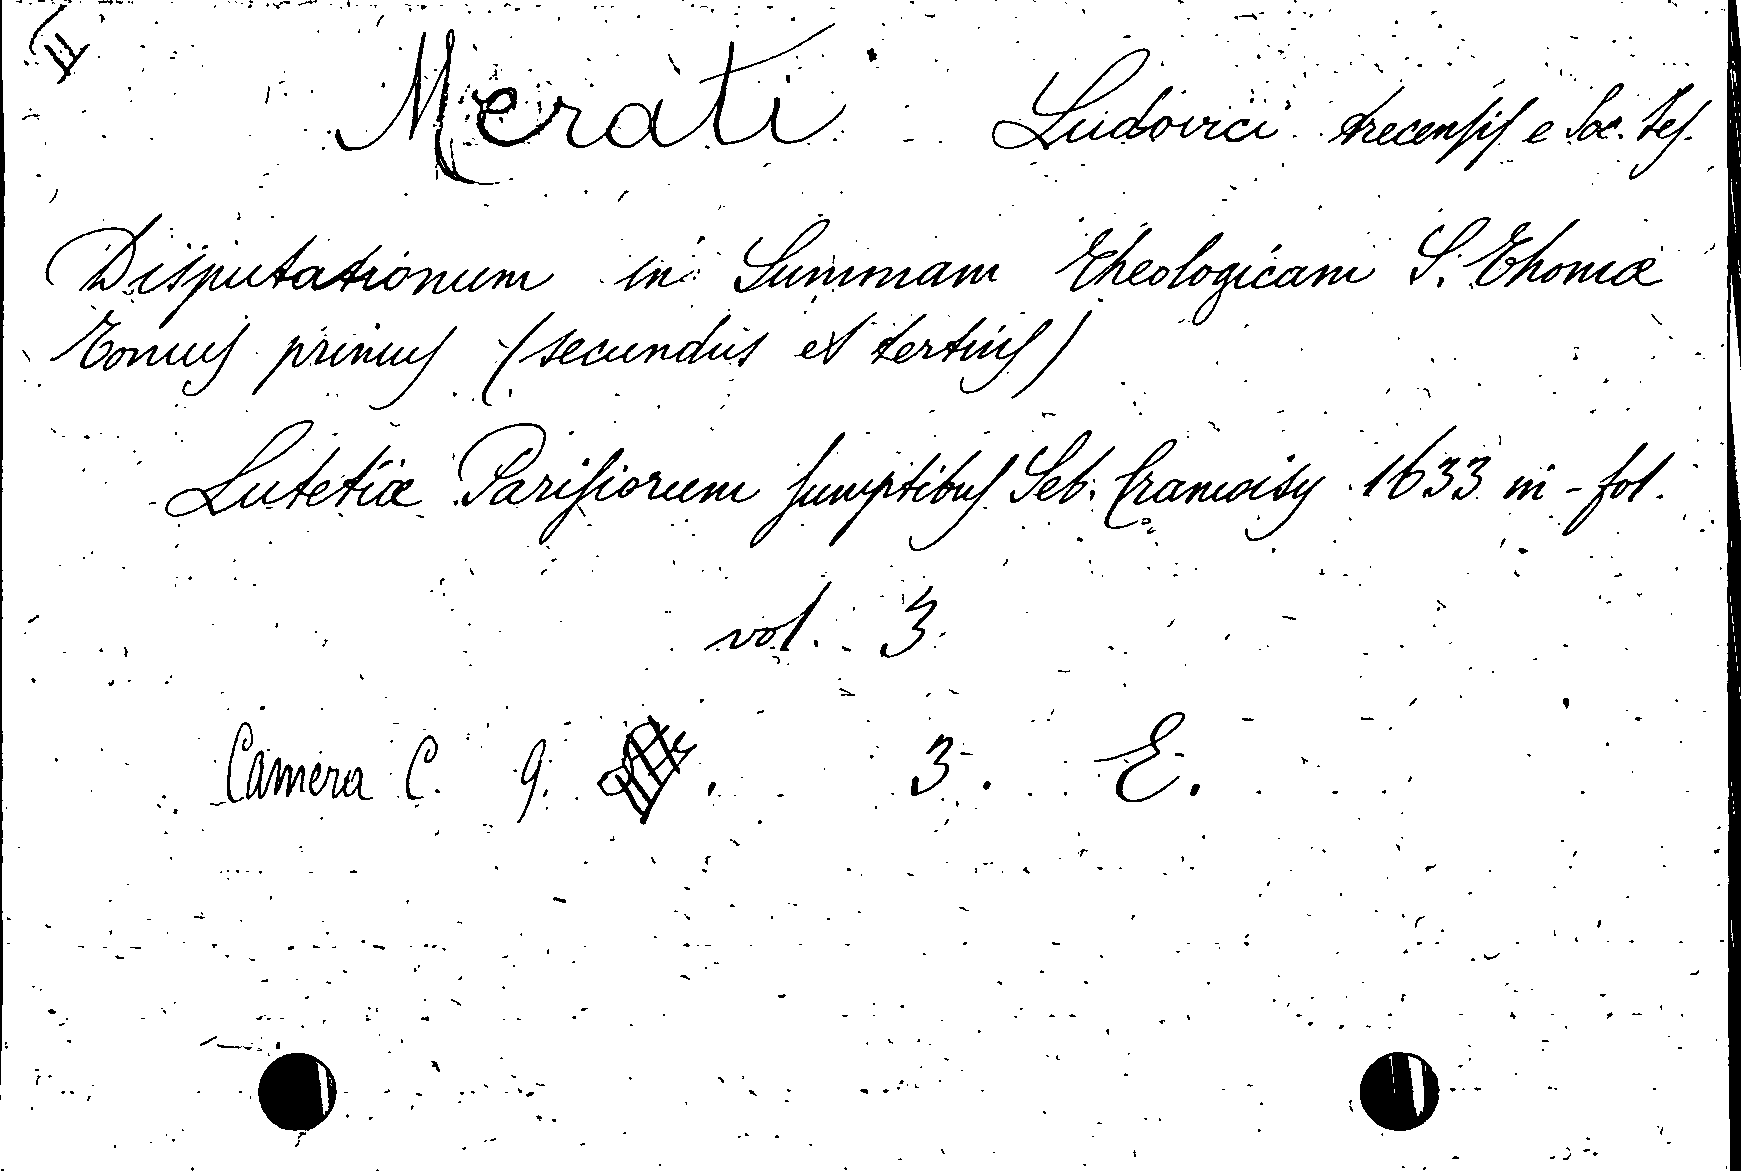 Merati Ludovici trecensis e Soc. Jes.
Disputationum in Summam Theologicam S. Thomæ
Tomus primus (secundus et tertius)
Lutetiæ Parisiorum sumptibus Seb. Cramoisy 1633 in-fol.
vol. 3
Camera C. 9. . 3. E.